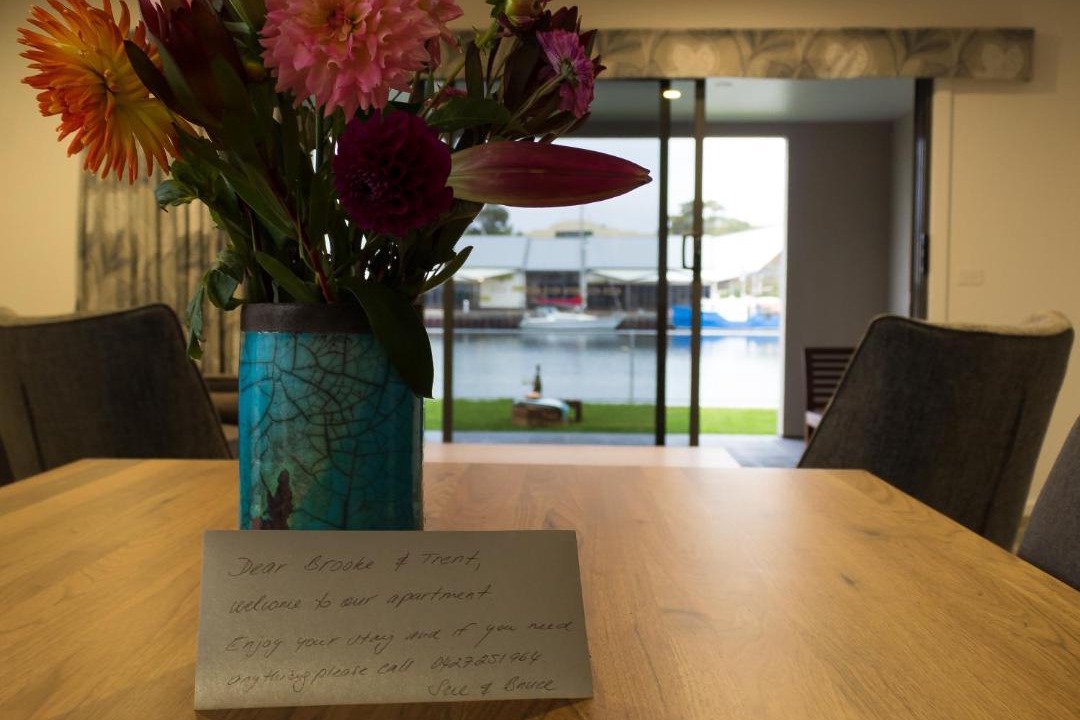 Dear Brooke & Trent,
welcome to our apartment
Enjoy your stay and if you need
anything please call 0427251964
Sue & Bruce